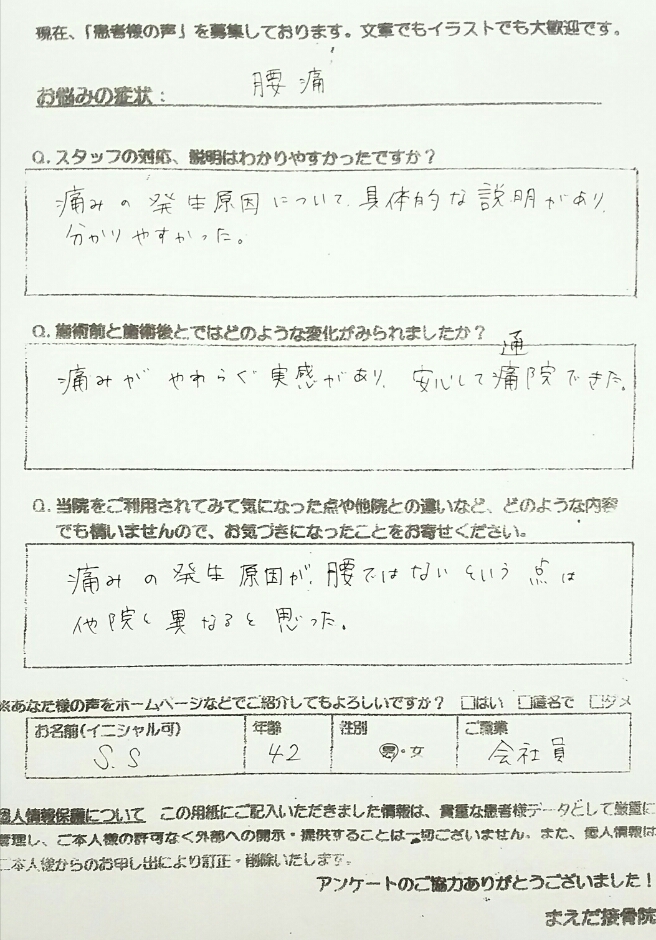 現在、「患者様の声」を募集しております。文章でもイラストでも大歓迎です。
お悩みの症状： 腰痛
Q. スタッフの対応、説明はわかりやすかったですか？
痛みの発生原因について、具体的な説明があり、
分かりやすかった。
Q. 施術前と施術後とではどのような変化がみられましたか？
通
痛みがやわらぐ実感があり、安心して痛院できた。
Q. 当院をご利用されてみて気になった点や他院との違いなど、どのような内容
でも構いませんので、お気づきになったことをお寄せください。
痛みの発生原因が、腰ではないという点は
他院と異なると思った。
※あなた様の声をホームページなどでご紹介してもよろしいですか？ □はい □匿名で □ダメ
お名前(イニシャル可) 年齢 性別 ご職業
S.S 42 男・女 会社員
個人情報保護について この用紙にご記入いただきました情報は、貴重な患者様データとして厳重に
管理し、ご本人様の許可なく外部への開示・提供することは一切ございません。また、個人情報は
ご本人様からのお申し出により訂正・削除いたします。
アンケートのご協力ありがとうございました！
まえだ接骨院